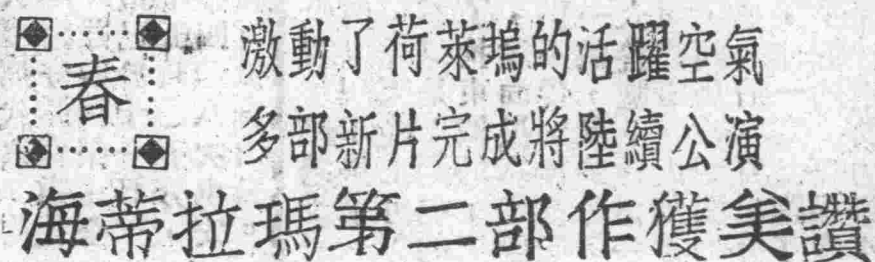 春
激動了荷萊塢的活躍空氣
多部新片完成將陸續公演
海蒂拉瑪第二部作獲美讚